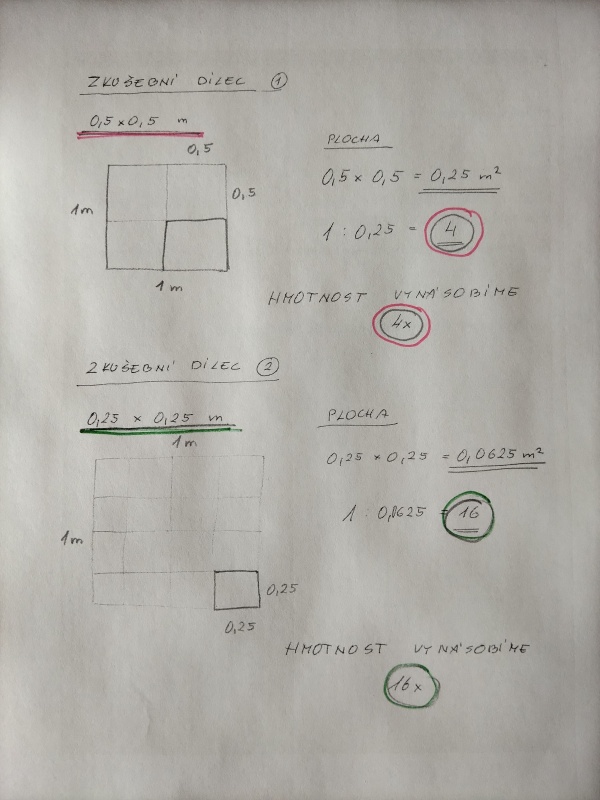 ZKUŠEBNÍ DÍLEC 1
0,5 x 0,5 m
0,5
0,5
1m
1 m
PLOCHA
0,5 x 0,5 = 0,25 m²
1 : 0,25 = 4
HMOTNOST VYNÁSOBÍME
4x
ZKUŠEBNÍ DÍLEC 2
0,25 x 0,25 m
1m
1m
0,25
0,25
PLOCHA
0,25 x 0,25 = 0,0625 m²
1 : 0,0625 = 16
HMOTNOST VYNÁSOBÍME
16x